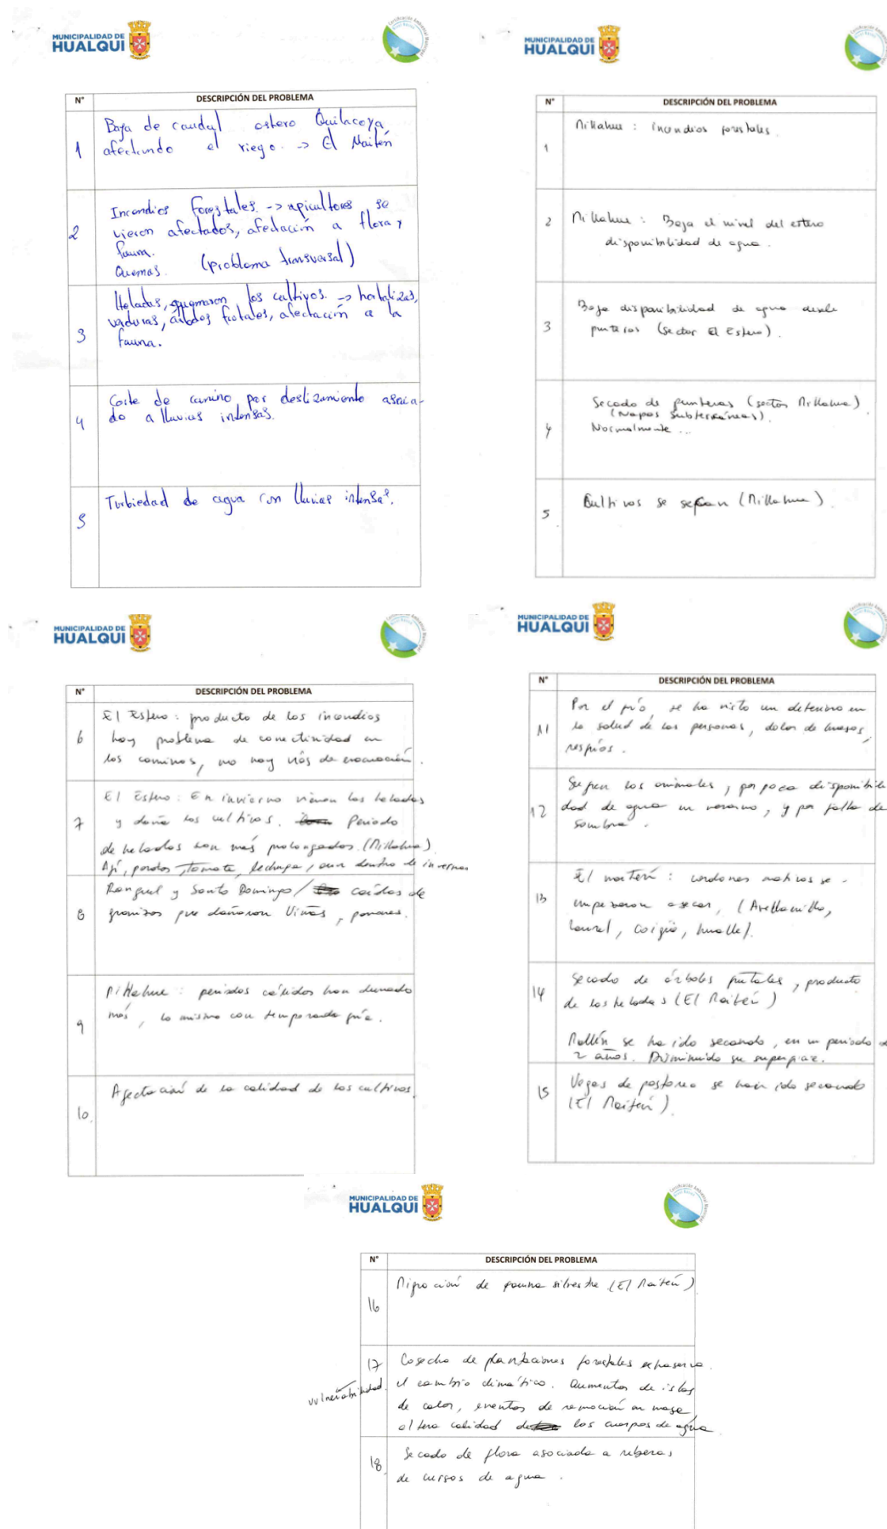 MUNICIPALIDAD DE
HUALQUI
N° DESCRIPCIÓN DEL PROBLEMA
1 Baja de caudal estero Quilacoya
afectando el riego. -> El Maitén
2 Incendios Forestales -> apicultores se
vieron afectados, afectación a flora y
fauna.
Quemas. (problema transversal)
3 Heladas, quemaron los cultivos -> hortalizas,
verduras, árboles frutales, afectación a la
fauna.
4 Corte de camino por deslizamiento asocia-
do a lluvias intensas.
5 Turbiedad de agua con lluvias intensas.
MUNICIPALIDAD DE
HUALQUI
N° DESCRIPCIÓN DEL PROBLEMA
1 Millahue : incendios forestales
2 Millahue : Baja el nivel del estero
disponibilidad de agua.
3 Baja disponibilidad de agua desde
punteros (sector El Estero).
4 Secado de punteras (sector Millahue)
(Napas subterráneas).
Normalmente ...
5 Cultivos se secan (Millahue)
MUNICIPALIDAD DE
HUALQUI
N° DESCRIPCIÓN DEL PROBLEMA
6 El Estero : producto de los incendios
hay problema de conectividad en
los caminos, no hay vías de evacuación.
7 El Estero : En invierno vienen las heladas
y daña los cultivos. Periodo
de heladas son más prolongados. (Millahue)
Ají, porotos, tomate, lechuga, aun dentro de invernas
8 Ranguel y Santo Domingo / caídas de
granizos que dañaron viñas, parrones.
9 Millahue : periodos cálidos han durado
más, lo mismo con temporada fría.
10 Afectación de la calidad de los cultivos.
MUNICIPALIDAD DE
HUALQUI
N° DESCRIPCIÓN DEL PROBLEMA
11 Por el frío se ha visto un deterioro en
la salud de las personas, dolor de huesos,
resfríos.
12 Sufren los animales, por poca disponibili
dad de agua en verano, y por falta de
sombra.
13 El maitén : cordones nativos se
empezaron a secar, (Avellanillo,
laurel, coigüe, hualle).
14 Secado de árboles frutales, producto
de las heladas (El Maitén)
Mallín se ha ido secando, en un periodo de
2 años. Disminuido su superficie.
15 Vegas de pastoreo se han ido secando
(El Maitén).
MUNICIPALIDAD DE
HUALQUI
N° DESCRIPCIÓN DEL PROBLEMA
16 Migración de fauna silvestre (El Maitén)
17 Cosecha de plantaciones forestales
vulnerabilidad el cambio climático. Aumentos de islas
de calor, eventos de remoción en masa,
altera calidad de los cuerpos de agua
18 Secado de flora asociada a riberas
de cursos de agua.